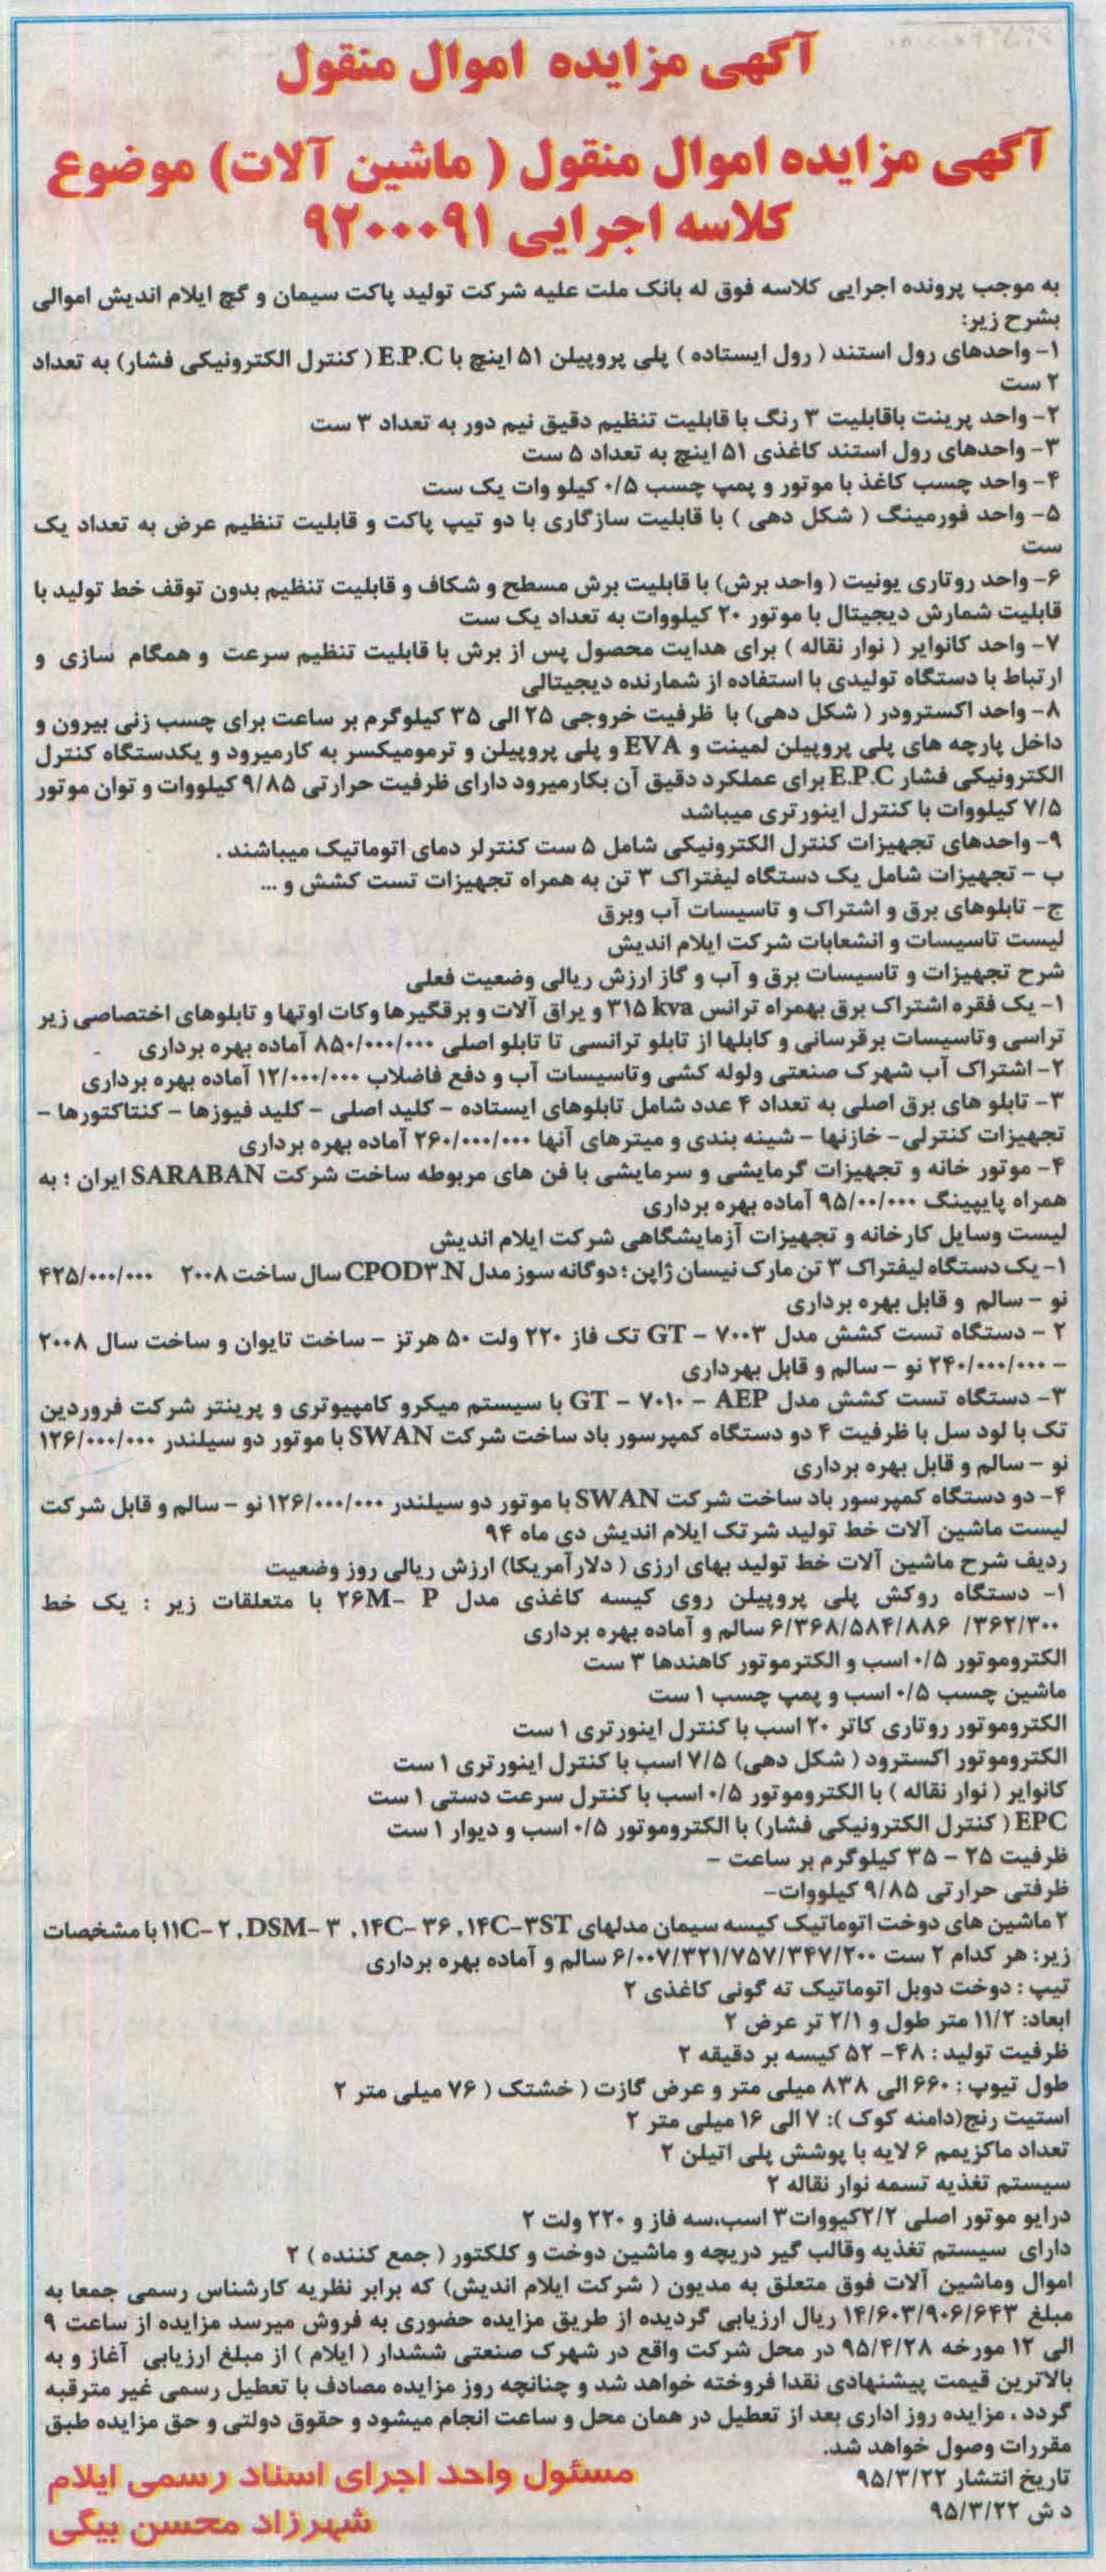 آگهی مزایده اموال منقول
آگهی مزایده اموال منقول ( ماشین آلات) موضوع
کلاسه اجرایی ۹۲۰۰۰۹۱
به موجب پرونده اجرایی کلاسه فوق له بانک ملت علیه شرکت تولید پاکت سیمان و گچ ایلام اندیش اموالی
بشرح زیر:
۱- واحدهای رول استند ( رول ایستاده ) پلی پروپیلن ۵۱ اینچ با E.P.C ( کنترل الکترونیکی فشار) به تعداد
۲ ست
۲- واحد پرینت باقابلیت ۳ رنگ با قابلیت تنظیم دقیق نیم دور به تعداد ۳ ست
۳- واحدهای رول استند کاغذی ۵۱ اینچ به تعداد ۵ ست
۴- واحد چسب کاغذ با موتور و پمپ چسب ۰/۵ کیلو وات یک ست
۵- واحد فورمینگ ( شکل دهی ) با قابلیت سازگاری با دو تیپ پاکت و قابلیت تنظیم عرض به تعداد یک
ست
۶- واحد روتاری یونیت ( واحد برش) با قابلیت برش مسطح و شکاف و قابلیت تنظیم بدون توقف خط تولید با
قابلیت شمارش دیجیتال با موتور ۲۰ کیلووات به تعداد یک ست
۷- واحد کانوایر ( نوار نقاله ) برای هدایت محصول پس از برش با قابلیت تنظیم سرعت و همگام سازی و
ارتباط با دستگاه تولیدی با استفاده از شمارنده دیجیتالی
۸- واحد اکسترودر ( شکل دهی) با ظرفیت خروجی ۲۵ الی ۳۵ کیلوگرم بر ساعت برای چسب زنی بیرون و
داخل پارچه های پلی پروپیلن لمینت و EVA و پلی پروپیلن و ترمومیکسر به کارمیرود و یکدستگاه کنترل
الکترونیکی فشار E.P.C برای عملکرد دقیق آن بکارمیرود دارای ظرفیت حرارتی ۹/۸۵ کیلووات و توان موتور
۷/۵ کیلووات با کنترل اینورتری میباشد
۹- واحدهای تجهیزات کنترل الکترونیکی شامل ۵ ست کنترلر دمای اتوماتیک میباشند .
ب - تجهیزات شامل یک دستگاه لیفتراک ۳ تن به همراه تجهیزات تست کشش و ...
ج- تابلوهای برق و اشتراک و تاسیسات آب وبرق
لیست تاسیسات و انشعابات شرکت ایلام اندیش
شرح تجهیزات و تاسیسات برق و آب و گاز ارزش ریالی وضعیت فعلی
۱- یک فقره اشتراک برق بهمراه ترانس ۳۱۵ kva و یراق آلات و برقگیرها وکات اوتها و تابلوهای اختصاصی زیر
تراسی وتاسیسات برقرسانی و کابلها از تابلو ترانسی تا تابلو اصلی ۸۵۰/۰۰۰/۰۰۰ آماده بهره برداری
۲- اشتراک آب شهرک صنعتی ولوله کشی وتاسیسات آب و دفع فاضلاب ۱۲/۰۰۰/۰۰۰ آماده بهره برداری
۳- تابلو های برق اصلی به تعداد ۴ عدد شامل تابلوهای ایستاده - کلید اصلی - کلید فیوزها - کنتاکتورها -
تجهیزات کنترلی- خازنها - شینه بندی و میترهای آنها ۲۶۰/۰۰۰/۰۰۰ آماده بهره برداری
۴- موتور خانه و تجهیزات گرمایشی و سرمایشی با فن های مربوطه ساخت شرکت SARABAN ایران ؛ به
همراه پایپینگ ۹۵/۰۰/۰۰۰ آماده بهره برداری
لیست وسایل کارخانه و تجهیزات آزمایشگاهی شرکت ایلام اندیش
۱- یک دستگاه لیفتراک ۳ تن مارک نیسان ژاپن ؛ دوگانه سوز مدل CPOD۳.N سال ساخت ۲۰۰۸ ۴۲۵/۰۰۰/۰۰۰
نو - سالم و قابل بهره برداری
۲ - دستگاه تست کشش مدل GT - ۷۰۰۳ تک فاز ۲۲۰ ولت ۵۰ هرتز - ساخت تایوان و ساخت سال ۲۰۰۸
- ۲۴۰/۰۰۰/۰۰۰ نو - سالم و قابل بهرداری
۳- دستگاه تست کشش مدل GT - ۷۰۱۰ - AEP با سیستم میکرو کامپیوتری و پرینتر شرکت فروردین
تک با لود سل با ظرفیت ۴ دو دستگاه کمپرسور باد ساخت شرکت SWAN با موتور دو سیلندر ۱۲۶/۰۰۰/۰۰۰
نو - سالم و قابل بهره برداری
۴- دو دستگاه کمپرسور باد ساخت شرکت SWAN با موتور دو سیلندر ۱۲۶/۰۰۰/۰۰۰ نو - سالم و قابل شرکت
لیست ماشین آلات خط تولید شرتک ایلام اندیش دی ماه ۹۴
ردیف شرح ماشین آلات خط تولید بهای ارزی ( دلارآمریکا) ارزش ریالی روز وضعیت
۱- دستگاه روکش پلی پروپیلن روی کیسه کاغذی مدل ۲۶M- P با متعلقات زیر : یک خط
۳۶۲/۳۰۰/ ۶/۳۶۸/۵۸۴/۸۸۶ سالم و آماده بهره برداری
الکتروموتور ۰/۵ اسب و الکترموتور کاهندها ۳ ست
ماشین چسب ۰/۵ اسب و پمپ چسب ۱ ست
الکتروموتور روتاری کاتر ۲۰ اسب با کنترل اینورتری ۱ ست
الکتروموتور اکسترود ( شکل دهی) ۷/۵ اسب با کنترل اینورتری ۱ ست
کانوایر ( نوار نقاله ) با الکتروموتور ۰/۵ اسب با کنترل سرعت دستی ۱ ست
EPC ( کنترل الکترونیکی فشار) با الکتروموتور ۰/۵ اسب و دیوار ۱ ست
ظرفیت ۲۵ - ۳۵ کیلوگرم بر ساعت -
ظرفتی حرارتی ۹/۸۵ کیلووات-
۲ ماشین های دوخت اتوماتیک کیسه سیمان مدلهای ۱۱C- ۲ , DSM- ۳ , ۱۴C- ۳۶ , ۱۴C-۳ST با مشخصات
زیر: هر کدام ۲ ست ۶/۰۰۷/۳۲۱/۷۵۷/۳۴۷/۲۰۰ سالم و آماده بهره برداری
تیپ : دوخت دوبل اتوماتیک ته گونی کاغذی ۲
ابعاد: ۱۱/۲ متر طول و ۲/۱ تر عرض ۲
ظرفیت تولید : ۴۸- ۵۲ کیسه بر دقیقه ۲
طول تیوپ : ۶۶۰ الی ۸۳۸ میلی متر و عرض گازت ( خشتک ( ۷۶ میلی متر ۲
استیت رنج(دامنه کوک ): ۷ الی ۱۶ میلی متر ۲
تعداد ماکزیمم ۶ لایه با پوشش پلی اتیلن ۲
سیستم تغذیه تسمه نوار نقاله ۲
درایو موتور اصلی ۲/۲کیووات۳ اسب،سه فاز و ۲۲۰ ولت ۲
دارای سیستم تغذیه وقالب گیر دریچه و ماشین دوخت و کلکتور ( جمع کننده ) ۲
اموال وماشین آلات فوق متعلق به مدیون ( شرکت ایلام اندیش) که برابر نظریه کارشناس رسمی جمعا به
مبلغ ۱۴/۶۰۳/۹۰۶/۶۴۳ ریال ارزیابی گردیده از طریق مزایده حضوری به فروش میرسد مزایده از ساعت ۹
الی ۱۲ مورخه ۹۵/۴/۲۸ در محل شرکت واقع در شهرک صنعتی ششدار ( ایلام ) از مبلغ ارزیابی آغاز و به
بالاترین قیمت پیشنهادی نقدا فروخته خواهد شد و چنانچه روز مزایده مصادف با تعطیل رسمی غیر مترقبه
گردد ، مزایده روز اداری بعد از تعطیل در همان محل و ساعت انجام میشود و حقوق دولتی و حق مزایده طبق
مقررات وصول خواهد شد.
تاریخ انتشار ۹۵/۳/۲۲
د ش ۹۵/۳/۲۲
مسئول واحد اجرای اسناد رسمی ایلام
شهرزاد محسن بیگی